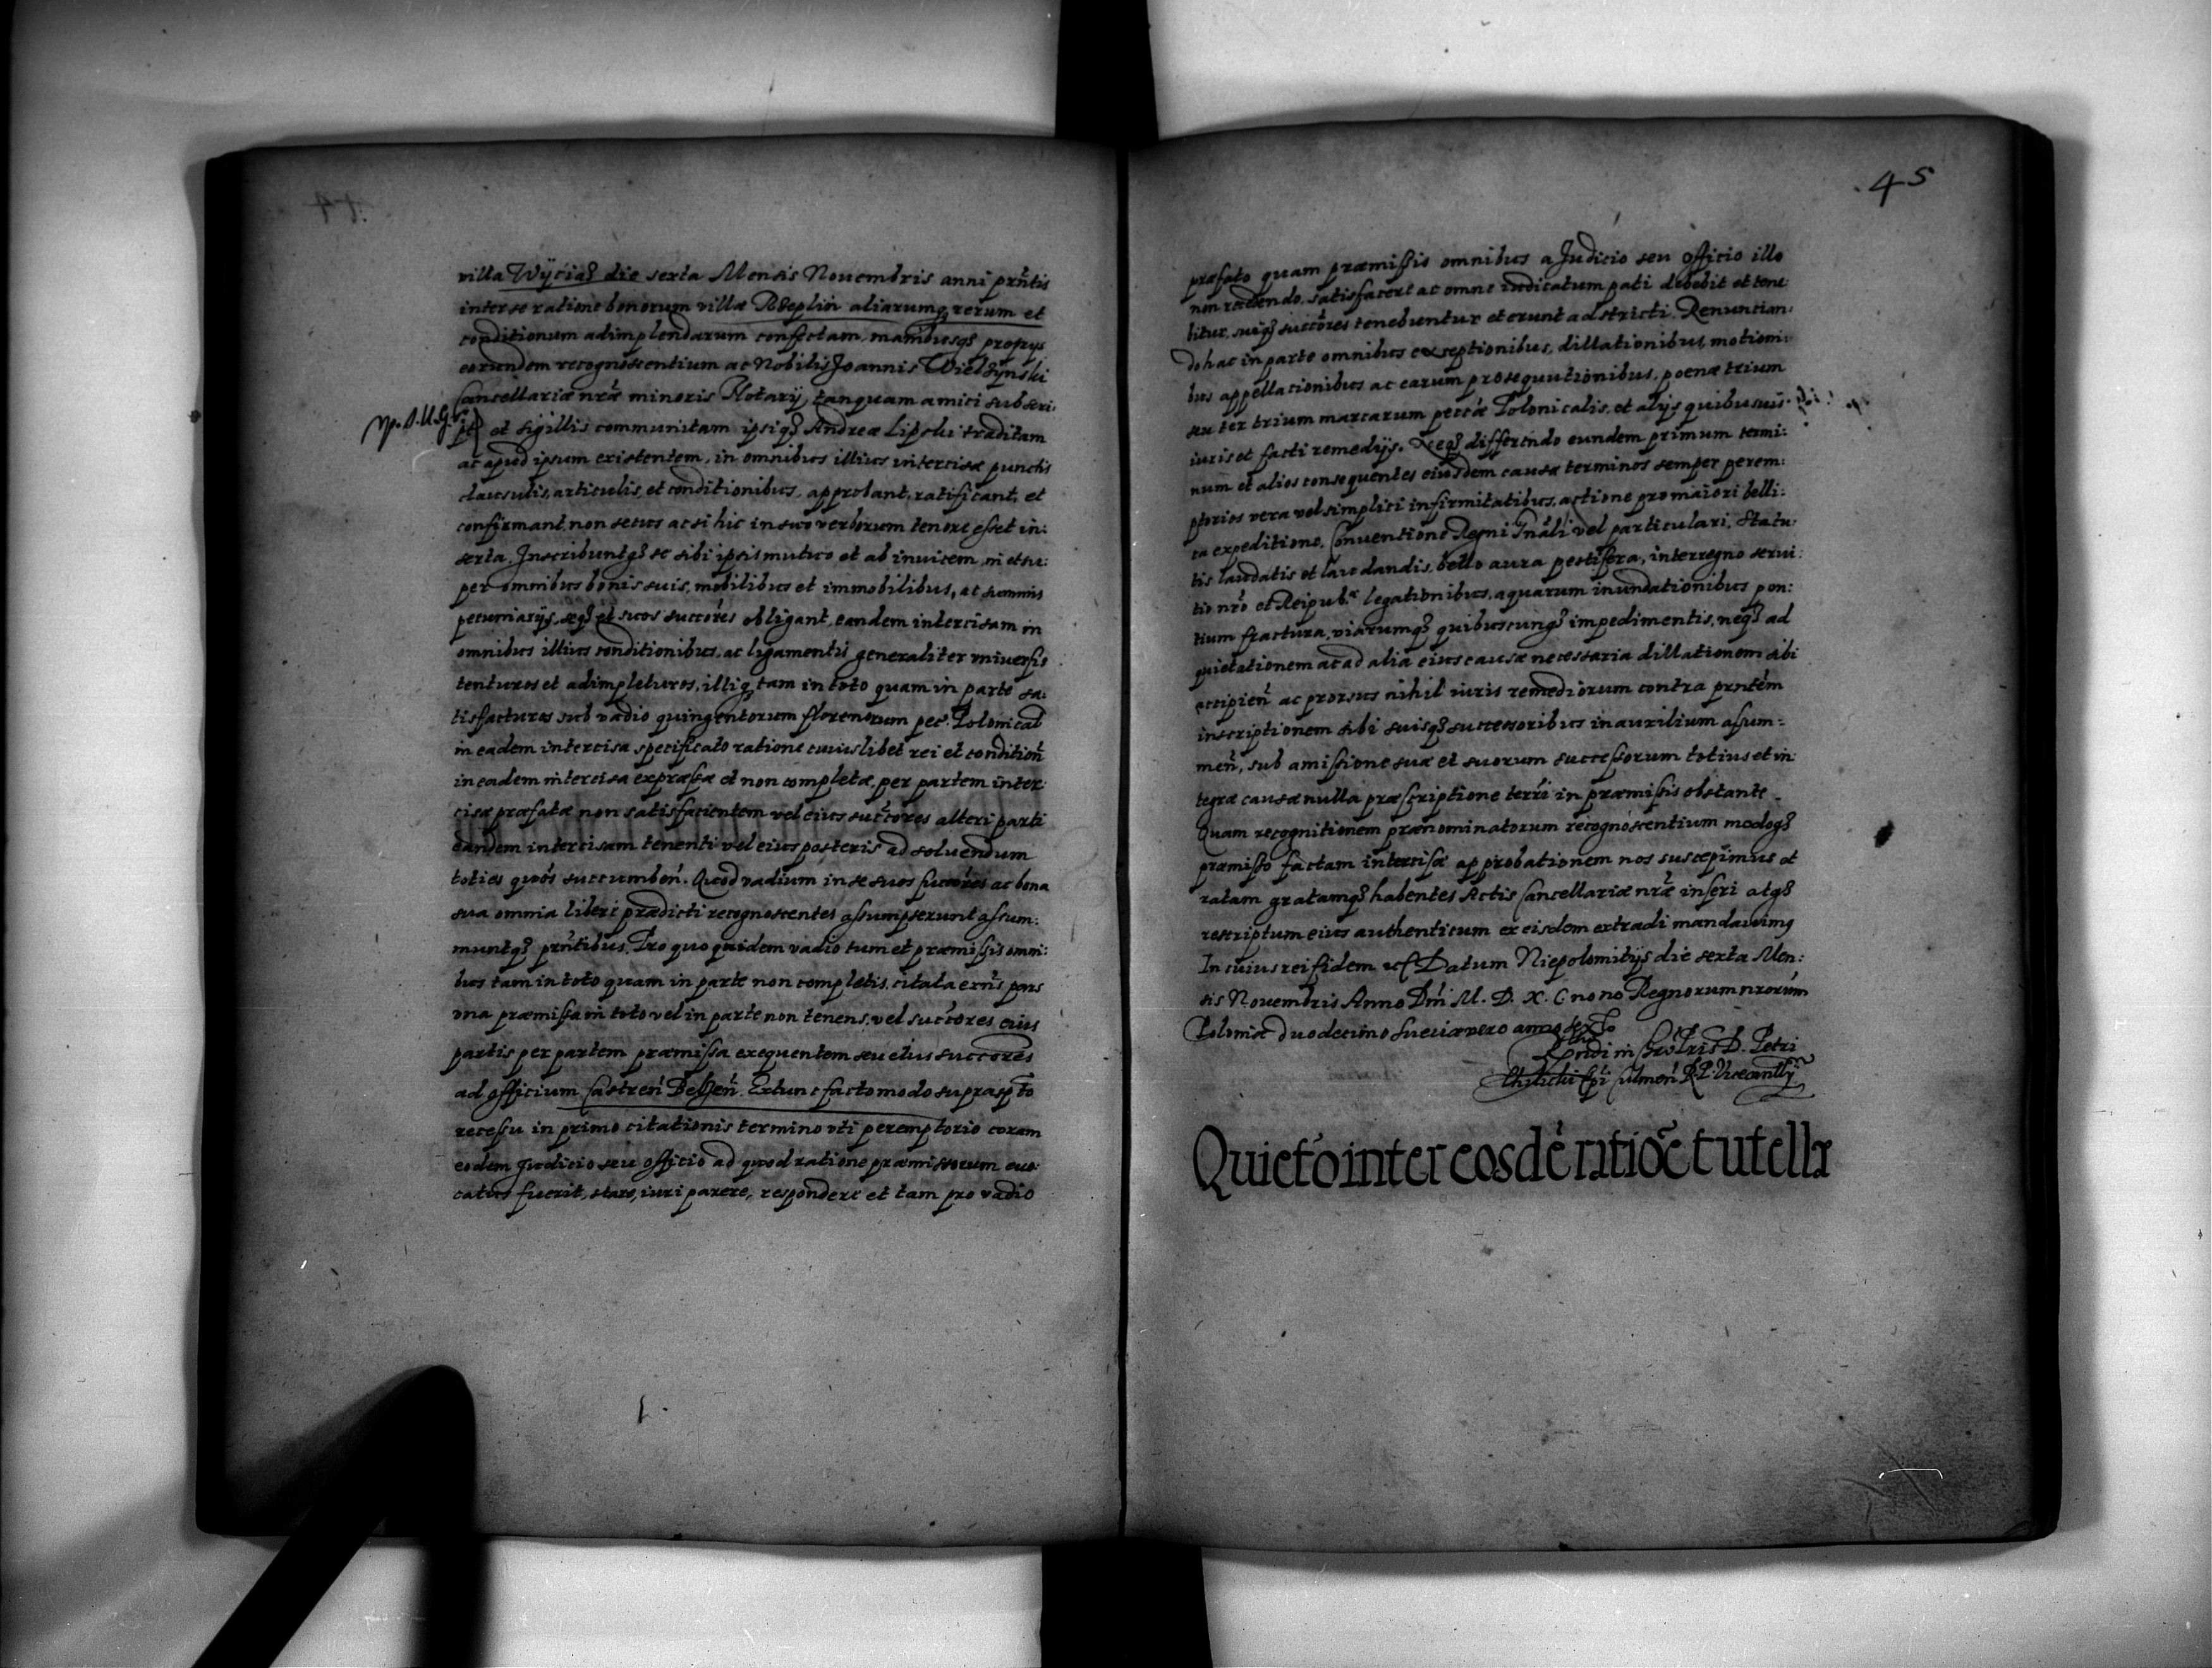 villa Wÿciąß die sexta Mensis Nouembris anni prñtis
inter se ratione bonorum villæ aliarumq3 rerum et
conditionum adimplendarum confectam, manibusq3 proprys
eorundem recognoscentium ac Nobilis Joannis Wielżÿnski
Cancellariæ nr̃æ minoris Notarÿ tanquam amici subscri:
et sigillis communitam ipsiq3 Andreæ Lipski traditam
ac apud ipsum existentem, in omnibus illius intercisæ punctis
clausulis, articulis, et conditionibus, approbant, ratificant, et
confirmant, non secus ac si hic in suo verborum tenore esset in:
serta. Inscribuntq3 se sibi ipsis mutuo et ab inuicem, ni et su:
per omnibus bonis suis, mobilibus et immobilibus, ac summis
pecuniarÿs, seq3 et suos succõres obligant, eandem intercisam in
omnibus illius conditionibus, ac ligamentis generaliter vniuersis
tenturos et adimpleturos, illiq3 tam in toto quam in parte sa:
tisfacturos sub vadio quingentorum florenorum pec. Polonical
in eadem intercisa specificato ratione cuiuslibet rei et condition̄
in eadem intercisa expræssæ et non completæ, per partem inter:
cisæ præfatæ non satisfacientem vel eius succ̃ores alteri parti
eandem intercisam tenenti vel eius posteris ad soluendum
toties quo͂s succumben̄. Quod vadium in se suos succõres ac bona
sua omnia liberè prædicti recognoscentes assumpserunt assum:
muntq3 prñtibus. Pro quo quidem vadio tum et præmissis omni:
bus tam in toto quam in parte non completis, citata exñs pars
vna præmissa in toto vel in parte non tenens, vel succ̃ores eius
partis per partem præmissa exequentem seu eius succores
ad officium Castren̄ Extunc facto modo suprasp̃to
recessu in primo citationis termino vti peremptorio coram
eodem Judicio seu officio ad quod ratione præmissorum euo:
catus fuerit, stare, iuri parere, respondere et tam pro vadio
45
præfato quam præmissis omnibus a Judicio seu officio illo
non ræcedendo, satisfacere ac omne iudicatum pati debebit et tene:
bitur, suiq3 succõres tenebuntur et erunt adstricti. Renuntian:
do hac in parte omnibus exceptionibus, dillationibus, motioni:
bus appellationibus ac earum prosequutionibus, poenæ trium
seu ter trium marcarum pec̃cæ Polonicalis, et alÿs quibusuis
iuris et facti remedÿs. Neq3 differendo eundem primum termi:
num et alios consequentes eiusdem causæ terminos semper perem:
ptorios vera vel simplici infirmitatibus, actione pro maiori belli:
ca expeditione, Conuentione Regni Gñali vel particulari, Statu:
tis laudatis et laudandis, bello aura pestifera, interregno serui:
tio nr̃o et Reipub.æ legationibus, aquarum inundationibus pon:
tium fractura, viarumq3 quibuscunq3 impedimentis, neq3 ad
quietationem ac ad alia eius causæ necessaria dillationem sibi
accipien̄ ac prorsus nihil iuris remediorum contra prñtem
inscriptionem sibi suisq3 successoribus in auxilium assum=
men̄, sub amissione suæ et suorum successorum totius et in:
tegræ causæ nulla præscriptione terr̃i in præmissis obstante.
Quam recognitionem prænominatorum recognoscentium modoq3
præmisso factam intercisæ approbationem nos suscepimus et
ratam gratamq3 habentes Actis Cancellariæ nr̃æ inseri atq3
rescriptum eius authenticum ex eisdem extradi mandauimq
In cuius rei fidem Datum Niepolomitÿs die sexta Men:
sis Nouembris Anno Dn̄i M. D. X. C nono Regnorum nrorum
Poloniæ duodecimo Sueciæ vero anno sexto
Rn̄di in Chro Pris D. Petri
Epi Culmen̄ R.P. Vicecanc̃ÿ
Quietõ inter eosdẽ ratiõe tutellæ